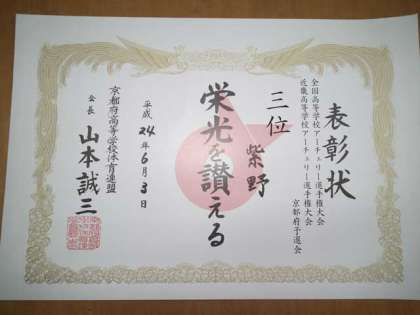 表彰状
全国高等学校アーチェリー選手権大会
近畿高等学校アーチェリー選手権大会
京都府予選会
三位
紫野
栄光を讃える
平成24年6月3日
京都府高等学校体育連盟
会長 山本誠三